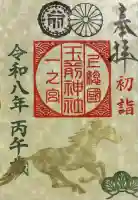 奉拝
初詣
上総國
一之宮
玉前神社
令和八年 丙午歳